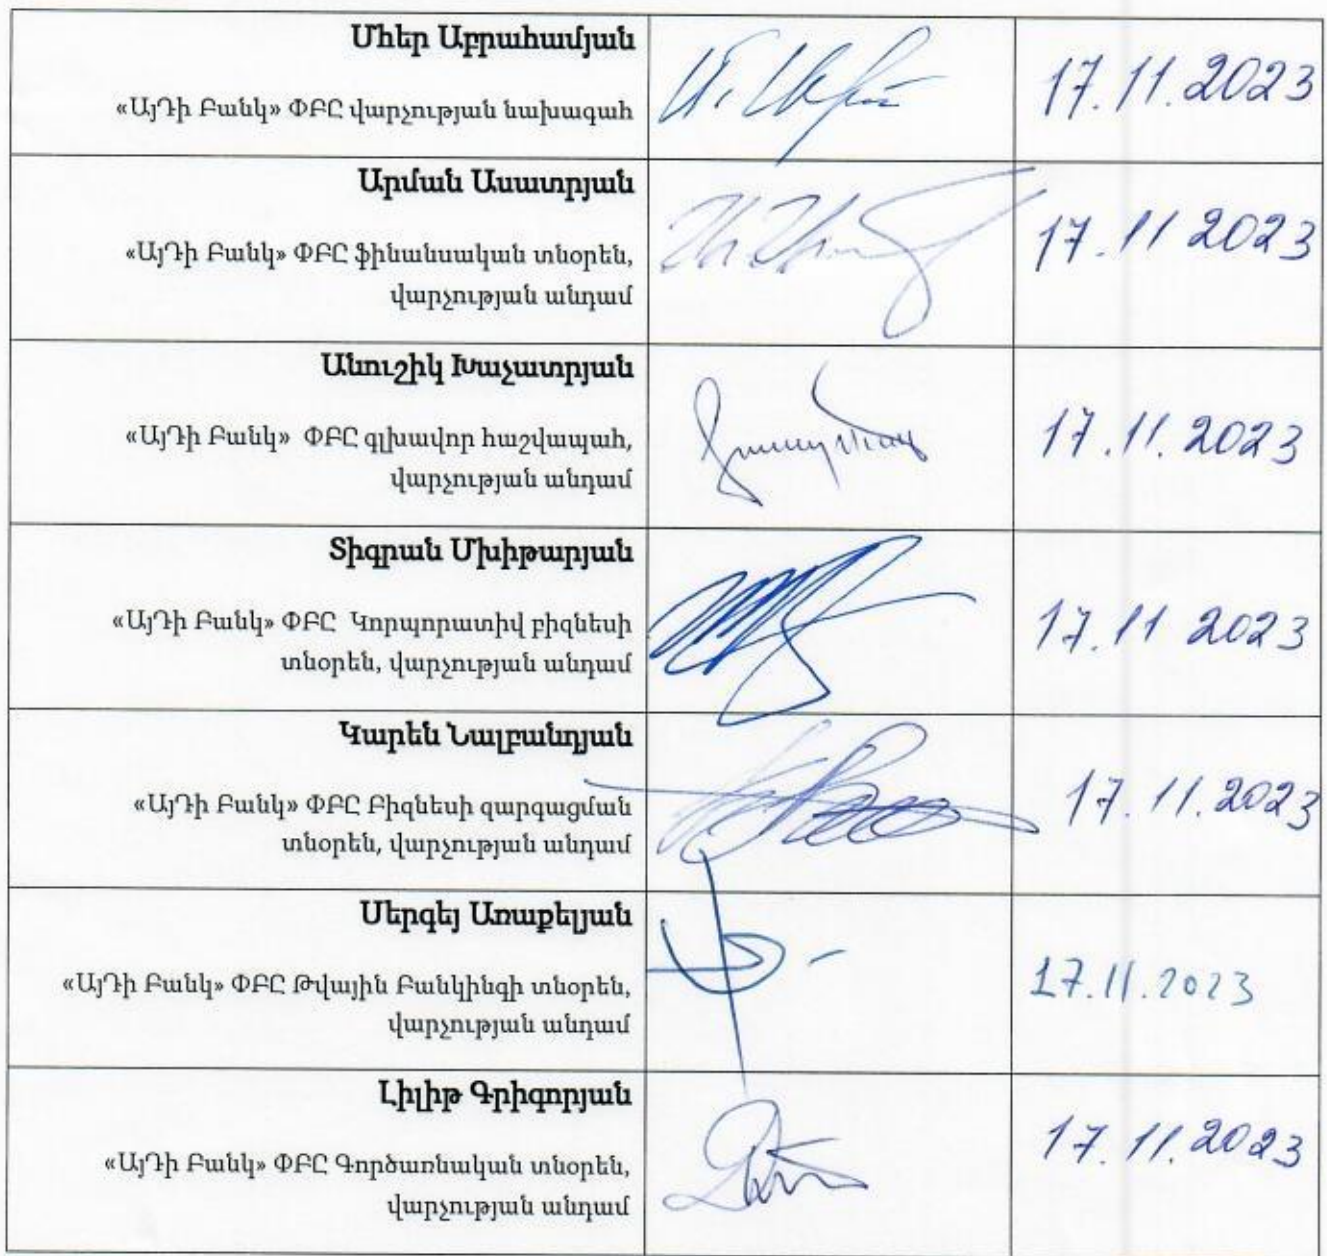 Մհեր Աբրահամյան
«ԱյԴի Բանկ» ՓԲԸ վարչության նախագահ
17.11.2023
Արման Ասատրյան
«ԱյԴի Բանկ» ՓԲԸ ֆինանսական տնօրեն,
վարչության անդամ
17.11 2023
Անուշիկ Խաչատրյան
«ԱյԴի Բանկ» ՓԲԸ գլխավոր հաշվապահ,
վարչության անդամ
17.11.2023
Տիգրան Մխիթարյան
«ԱյԴի Բանկ» ՓԲԸ Կորպորատիվ բիզնեսի
տնօրեն, վարչության անդամ
17.11 2023
Կարեն Նալբանդյան
«ԱյԴի Բանկ» ՓԲԸ Բիզնեսի զարգացման
տնօրեն, վարչության անդամ
17.11.2023
Սերգեյ Առաքելյան
«ԱյԴի Բանկ» ՓԲԸ Թվային Բանկինգի տնօրեն,
վարչության անդամ
17.11.2023
Լիլիթ Գրիգորյան
«ԱյԴի Բանկ» ՓԲԸ Գործառնական տնօրեն,
վարչության անդամ
17.11.2023